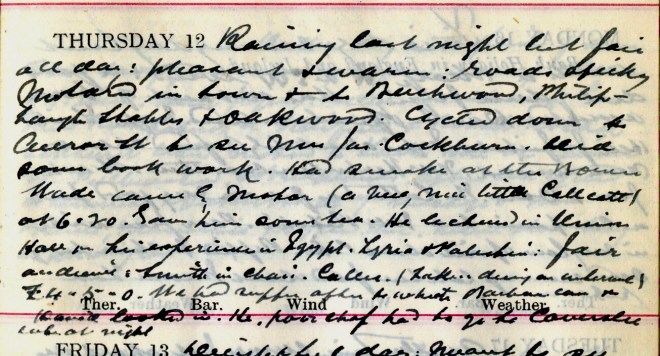 THURSDAY 12 Raining last night but fair
all day: pleasant & warm: roads sticky
Motored in town & to Beechwood, Philip-
haugh Stables & Oakwood. Cycled down to
St to see Mrs Jas. Cockburn. Did
some book work. Had smoke at the
Wade came by Motor (a very nice little )
at 6-20. Gave him some tea. He lectured in Union
Hall on his experience in Egypt. Syria & Palestine: fair
audience: Smith in chair. Collec. (taken during an interval)
£4-5-0. We had supper after to which Barbara came &
Ther. Bar. Wind Weather.
David looked in. He, poor chap had to go to Caverslee
at night
FRIDAY 13 Delightful day: